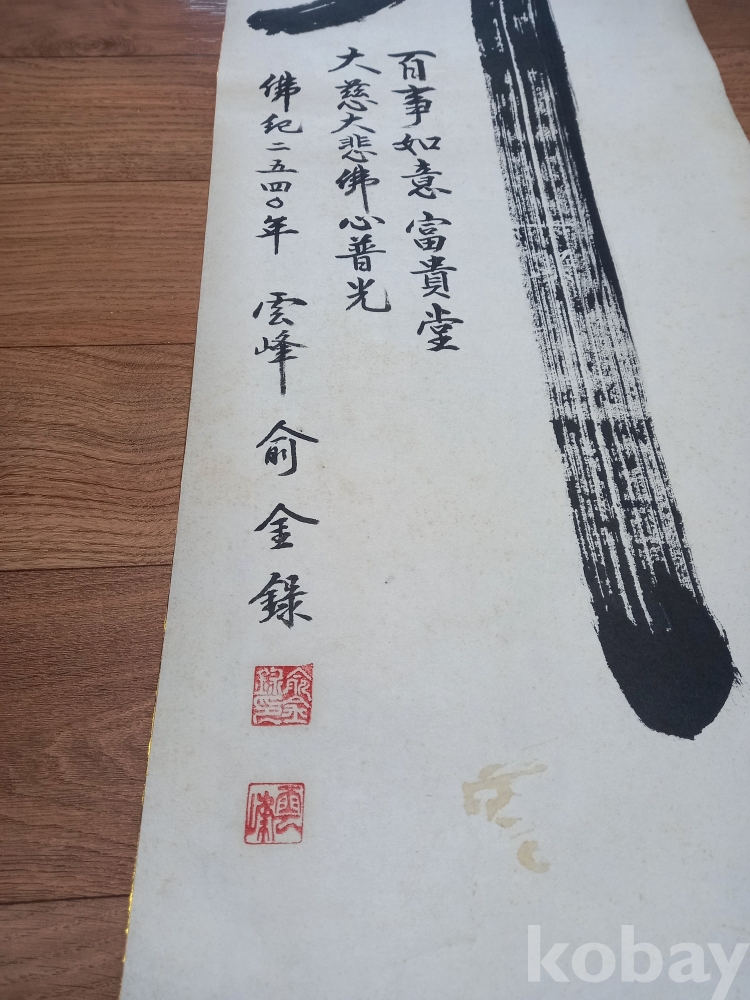 百事如意富貴堂
大慈大悲佛心普光
佛紀二五四〇年 雲峰 俞金錄
俞金錄印
雲峰
kobay